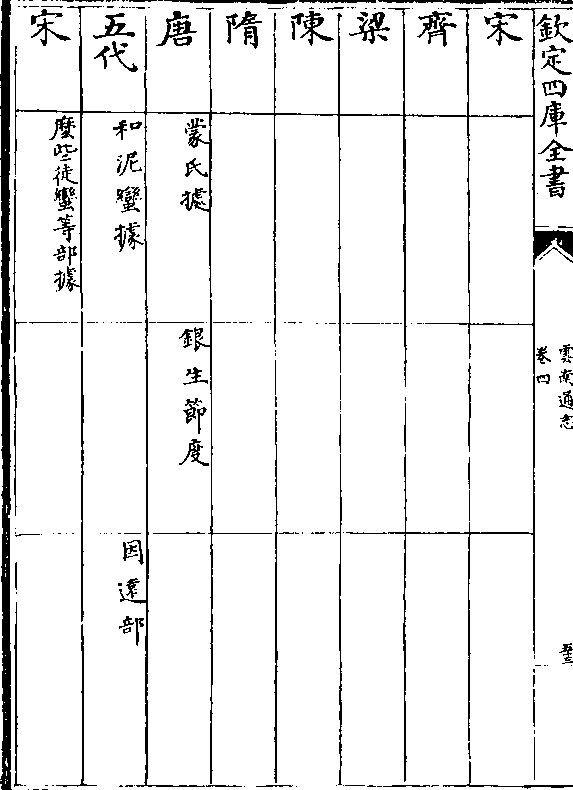 欽定四庫全書
雲南通志
卷四
宋
齊
梁
陳
隋
唐
蒙氏據
銀生節度
五代
和泥蠻據
因遠部
宋
麼些徒蠻等部據